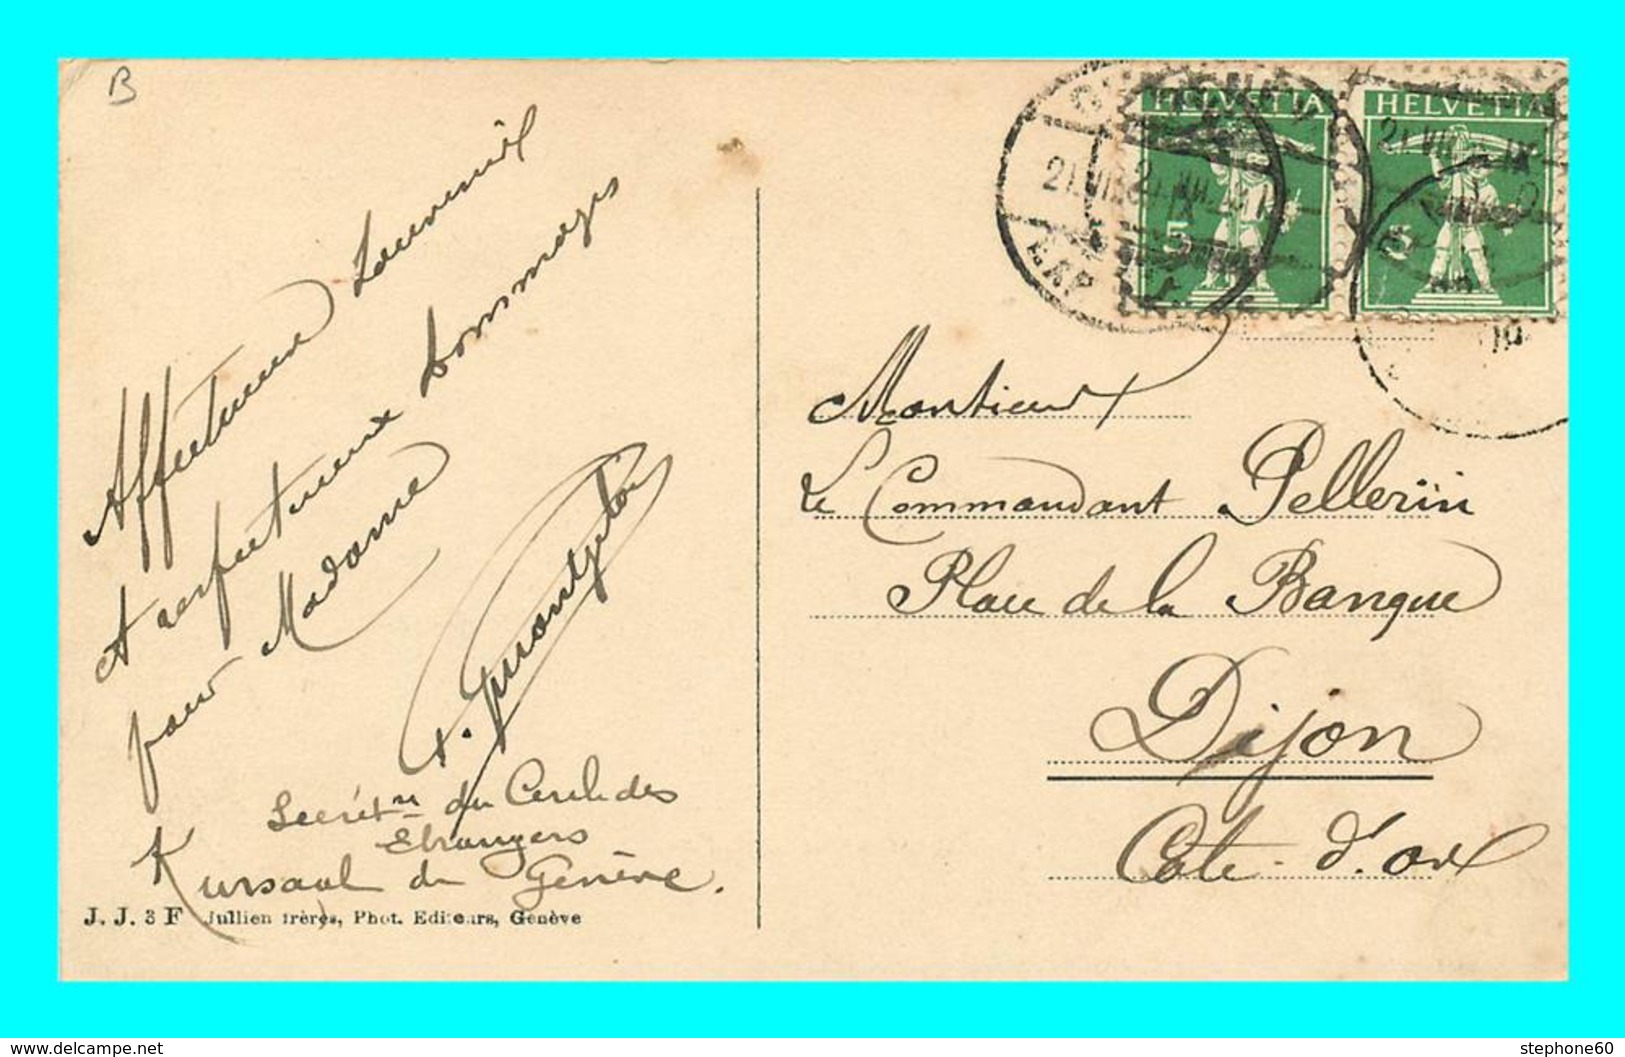 B
Affectueux Souvenir
et respectueux hommages
pour Madame
Secrét.re du Cercle des
Etrangers
Kursaal de Genève.
J. J. 3 F Jullien frères, Phot. Editeurs, Genève
HELVETIA HELVETIA
5 5
Monsieur
Le Commandant Pellerin
Place de la Banque
Dijon
Côte-d'or
www.delcampe.net
stephone60